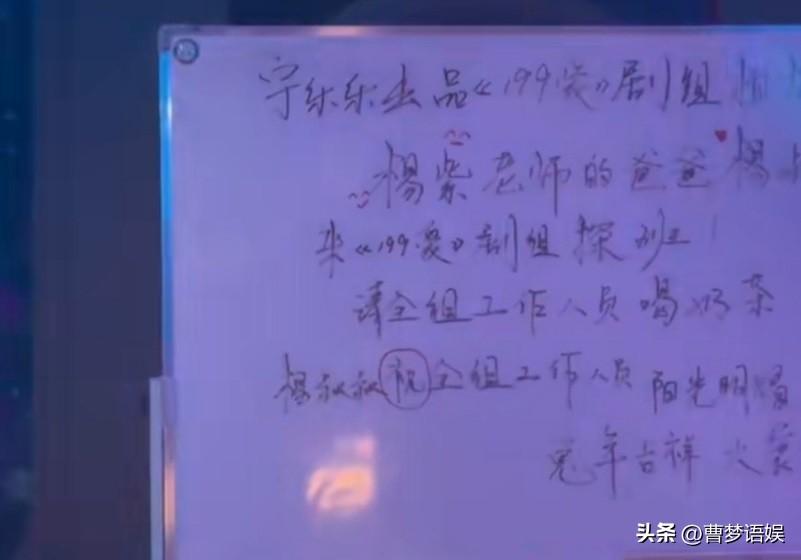 宁乐乐出品《199爱》剧组
杨紫老师的爸爸杨
来《199爱》剧组探班!
请全组工作人员喝奶茶
杨叔叔祝全组工作人员阳光明媚
兔年吉祥 大家
头条 @曹梦语娱